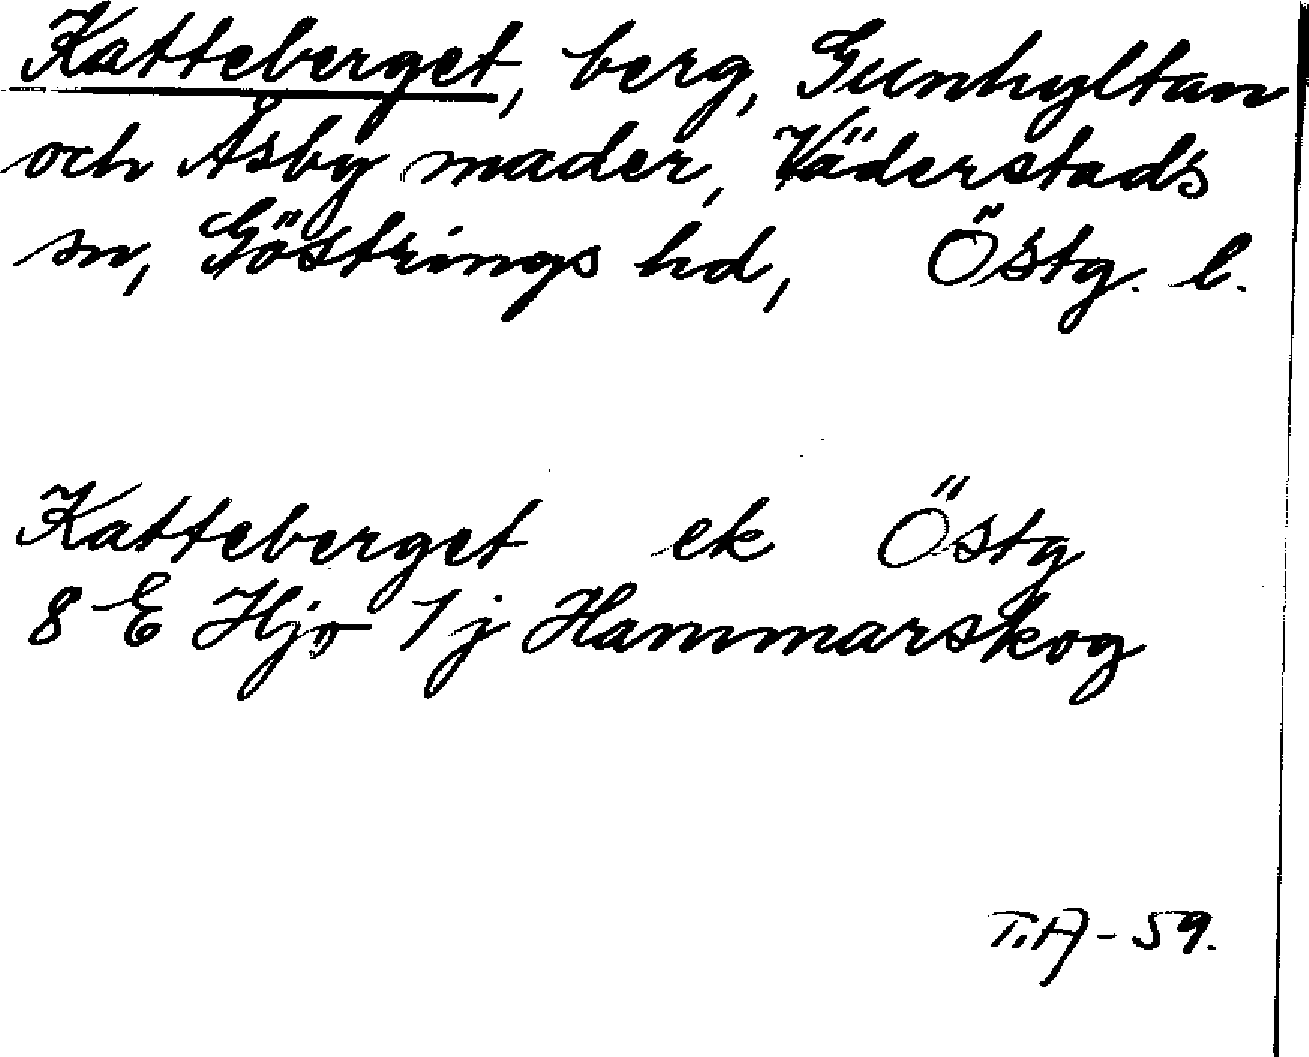 Katteberget, berg, Gunhyltan
och Åsby mader, Väderstads
sn, Göstrings hd, Östg. l.
Katteberget ek Östg
8 E Hjo 1j Hammarskog
T.A - 59.